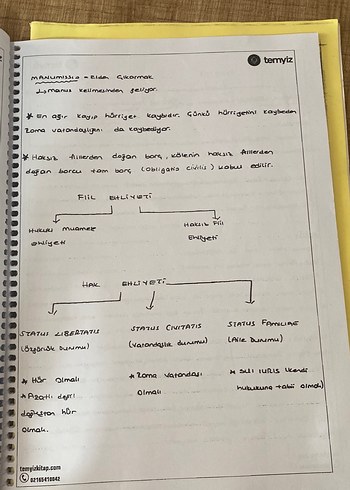 temyiz
MANUMISSIO → Elden Çıkarmak
↳ manus kelimesinden geliyor.
* En ağır kayıp hürriyet kaybıdır. Çünkü hürriyetini kaybeden
Roma vatandaşlığını da kaybediyor.
* Haksız fiillerden doğan borç, kölenin haksız fiillerden
doğan borcu tam borç (obligatio civilis) kabul edilir.
FİİL EHLİYETİ
Hukuki Muamele Haksız Fiil
ehliyeti Ehliyeti
HAK EHLİYETİ
STATUS LIBERTATIS STATUS CIVITATIS STATUS FAMILIAE
(Özgürlük Durumu) (Vatandaşlık durumu) (Aile Durumu)
* Hür Olmalı * Roma Vatandaşı * SUI IURIS (Kendi
* Azatlı değil Olmalı hukukuna tabii olmalı)
doğuştan hür
Olmalı.
temyizkitap.com
02165410042